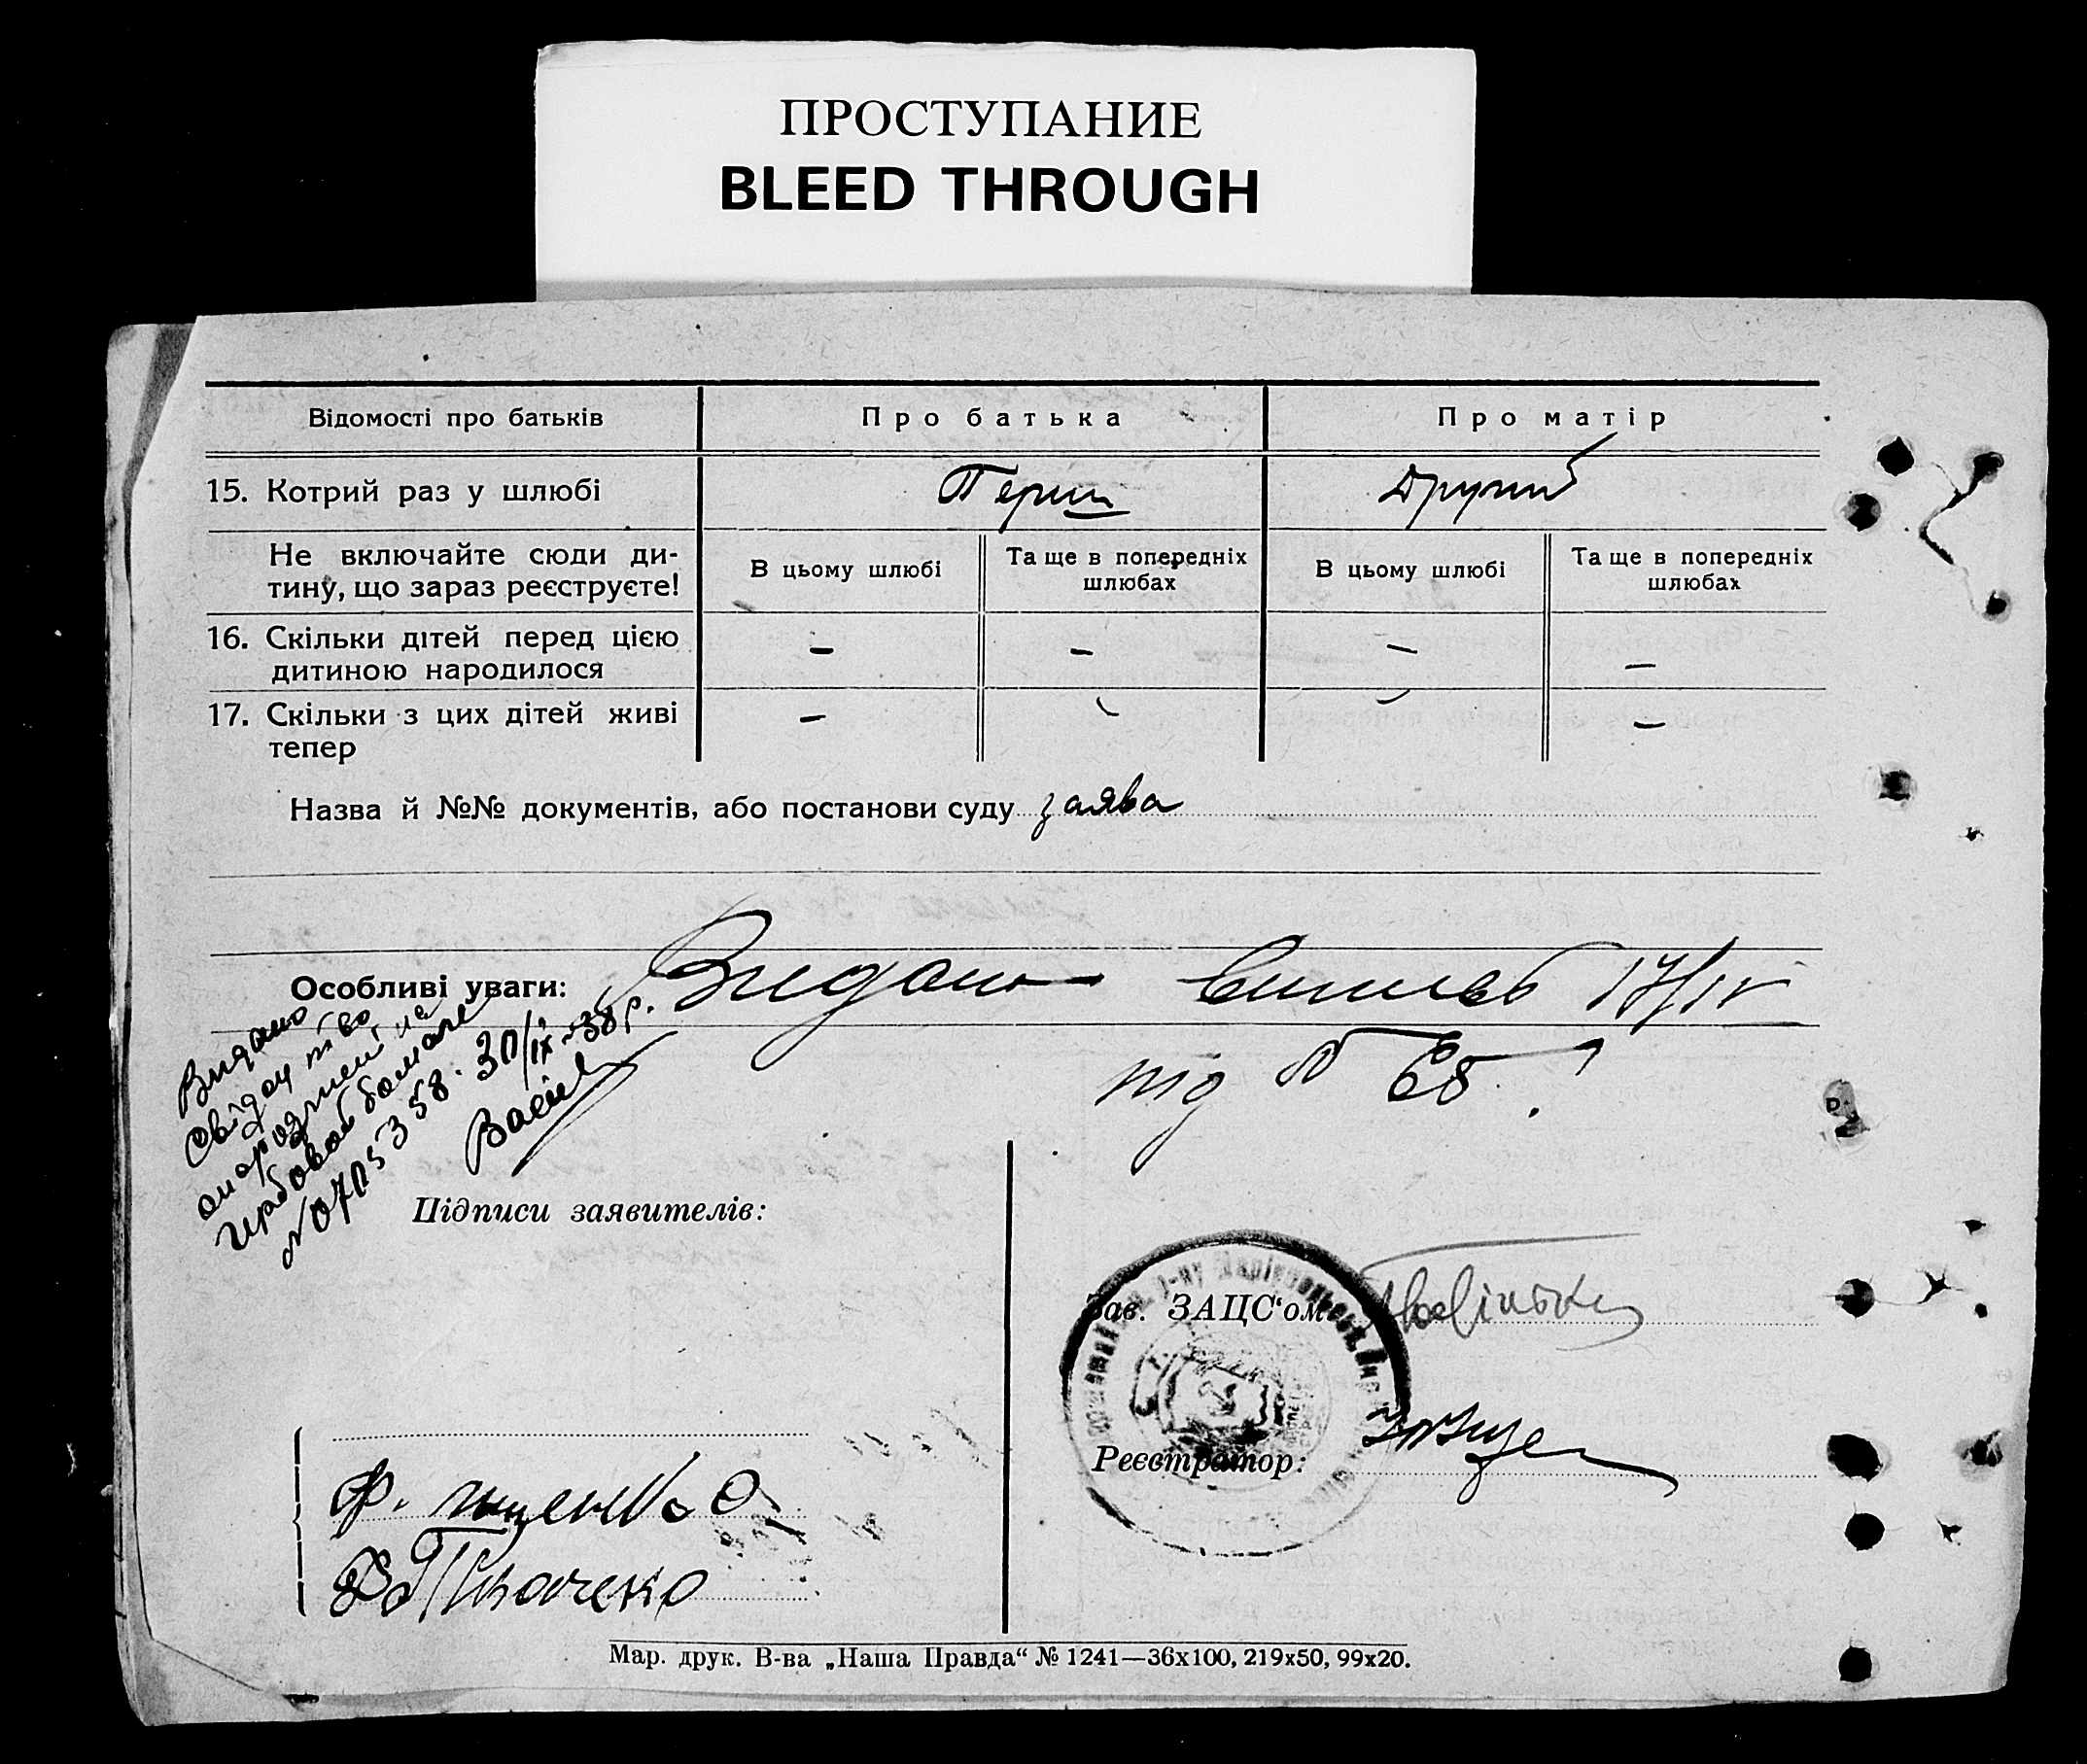 ПРОСТУПАНИЕ
BLEED THROUGH
Відомості про батьків
Про батька
Про матір
15. Котрий раз у шлюбі
Перш
Другий
Не включайте сюди ди-
тину, що зараз реєструєте!
В цьому шлюбі
Та ще в попередніх
шлюбах
В цьому шлюбі
Та ще в попередніх
шлюбах
16. Скільки дітей перед цією
дитиною народилося
–
–
–
–
17. Скільки з цих дітей живі
тепер
–
–
–
–
Назва й №№ документів, або постанови суду заява
Особливі уваги: Видано 17/IV
під № 68.
Видано
Свідоцтво
гербовой бомаге
№0705358. 30/IX-38р.
Підписи заявителів:
Зав. ЗАЦС‘ом
Реєстратор:
Мар. друк. В-ва „Наша Правда“ № 1241—36х100, 219х50, 99х20.